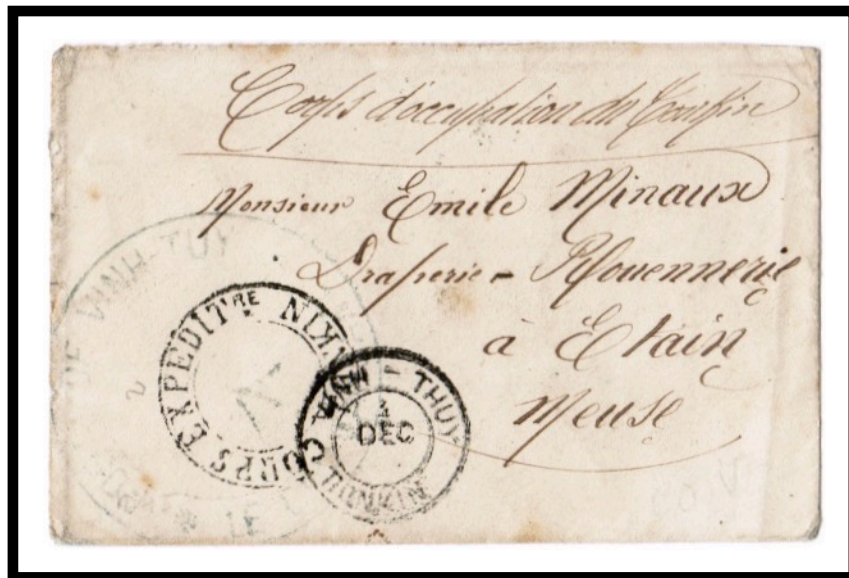 Corps d'occupation du Tonkin
Monsieur Emile Minaux
Draperie - Rouennerie
à Etain
Meuse
DE VINH-TUY
CORPS EXPEDIT RE
VINH-THUY
1
DEC
TONKIN